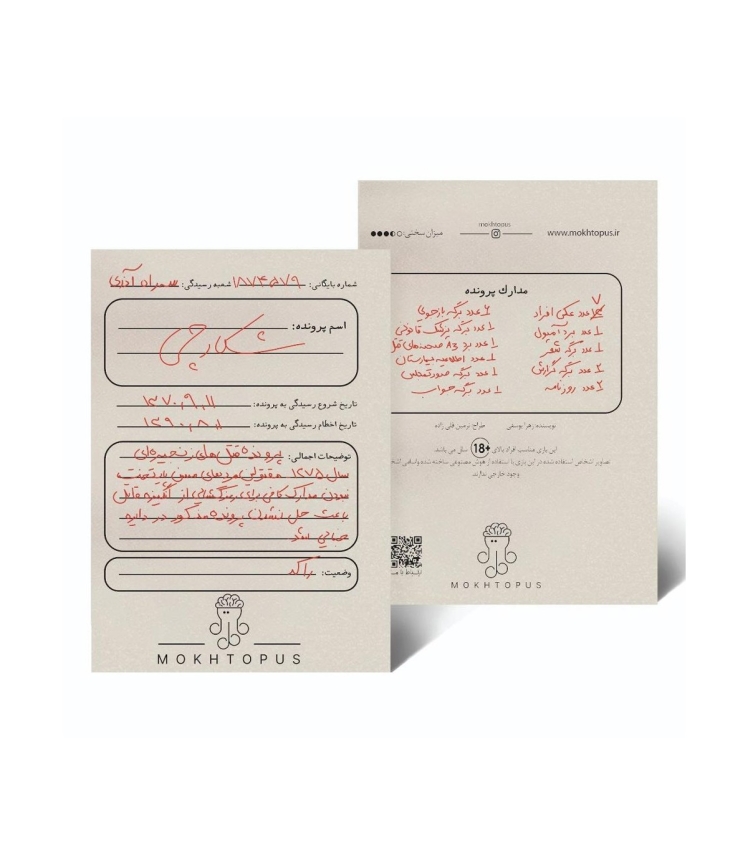 شماره بایگانی: ۱۸۷۴۵۷۹ شعبه رسیدگی:
اسم پرونده:
شکارچی
تاریخ شروع رسیدگی به پرونده: ۱۳۷۰,۹,۱۱
تاریخ اختتام رسیدگی به پرونده: ۱۳۹۰,۸,۱
توضیحات اجمالی: پرونده قتل‌های زنجیره‌ای
سال ۱۳۷۵ مقتولین مردهای مسن پایتخت
نبودن مدارک کافی برای از انگیزه قاتل
باعث حل نشدن پرونده مذکور در دایره
جنایی شد
وضعیت: راکد
MOKHTOPUS
www.mokhtopus.ir
mokhtopus
میزان سختی:
مدارک پرونده
۷ عدد عکس افراد
۱ عدد برد آمپول
۱ عدد برگه شعر
۲ عدد برگه گزارش
۲ عدد روزنامه
۲ عدد برگه بازجویی
۱ عدد برگه پزشک قانونی
۱ عدد برد A3 صحنه‌های قتل
۱ عدد اطلاعیه بیمارستان
۱ عدد برگه صورتمجلس
۱ عدد برگه جواب
نویسنده: زهرا یوسفی طراح: نرمین قلی زاده
این بازی مناسب افراد بالای +18 سال می باشد.
تصاویر اشخاص استفاده شده در این بازی با استفاده از هوش مصنوعی ساخته شده و اسامی
وجود خارجی ندارند.
MOKHTOPUS